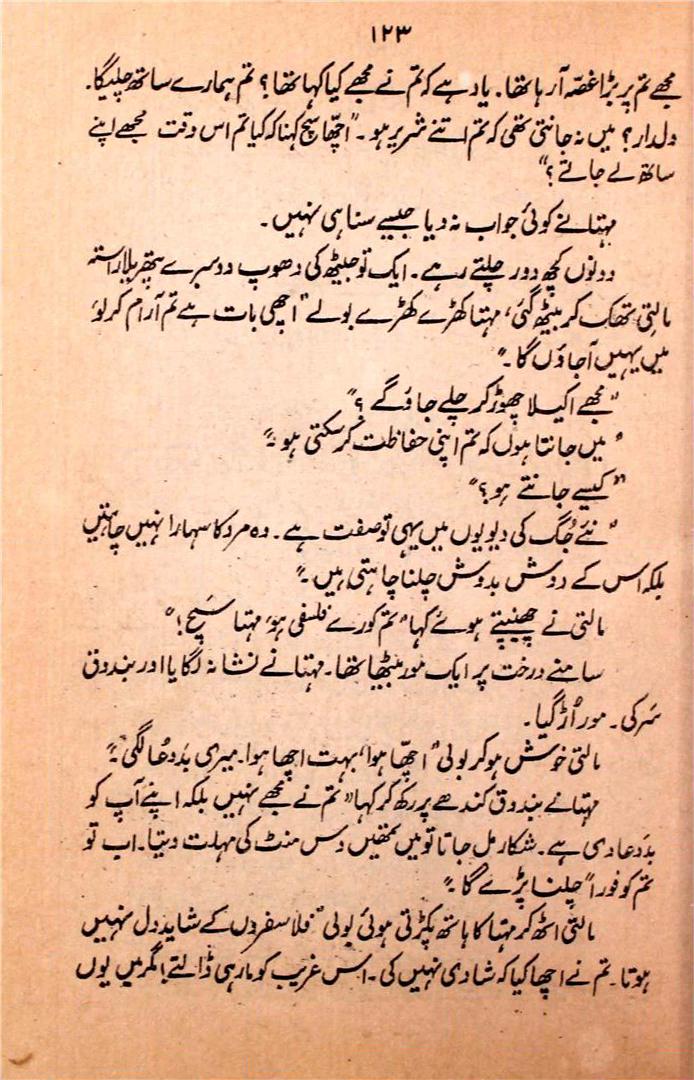 ۱۲۳
مجھے تم پر بڑا غصّہ آ رہا تھا۔ یاد ہے کہ تم نے مجھے کیا کہا تھا؟ تم ہمارے ساتھ چلیگا۔
دلدار؟ میں نہ جانتی تھی کہ تم اتنے شریر ہو۔" اچّھا سچ کہنا کہ کیا تم اس وقت مجھے اپنے
ساتھ لے جاتے؟"
مہتا نے کوئی جواب نہ دیا جیسے سنا ہی نہیں۔
دونوں کچھ دور چلتے رہے۔ ایک تو جیٹھ کی دھوپ دوسرے پتھریلا راستہ
مالتی تھک کر بیٹھ گئی، مہتا کھڑے کھڑے بولے "اچھی بات ہے تم آرام کرلو،
میں یہیں آجاؤں گا۔"
"مجھے اکیلا چھوڑ کر چلے جاؤگے؟"
"میں جانتا ہوں کہ تم اپنی حفاظت کر سکتی ہو۔"
"کیسے جانتے ہو؟"
"نئے جُگ کی دیویوں میں یہی تو صفت ہے۔ وہ مرد کا سہارا نہیں چاہتیں
بلکہ اس کے دوش بدوش چلنا چاہتی ہیں۔"
مالتی نے جھینپتے ہوئے کہا "تم کورے فلسفی ہو، مہتا سَچ!"
سامنے درخت پر ایک مور بیٹھا تھا۔ مہتا نے نشانہ لگایا اور بندوق
سَر کی۔ مور اُڑ گیا۔
مالتی خوش ہو کر بولی "اچّھا ہوا، بہت اچھا ہوا۔ میری بَددُعا لگی۔"
مہتا نے بندوق کندھے پر رکھ کر کہا "تم نے مجھے نہیں بلکہ اپنے آپ کو
بَددعا دی ہے۔ شکار مل جاتا تو میں تمھیں دس منٹ کی مہلت دیتا۔ اب تو
تم کو فوراً چلنا پڑے گا۔"
مالتی اٹھ کر مہتا کا ہاتھ پکڑتی ہوئی بولی "فلاسفروں کے شاید دل نہیں
ہوتا۔ تم نے اچھا کیا کہ شادی نہیں کی۔ اس غریب کو مار ہی ڈالتے! مگر میں یوں